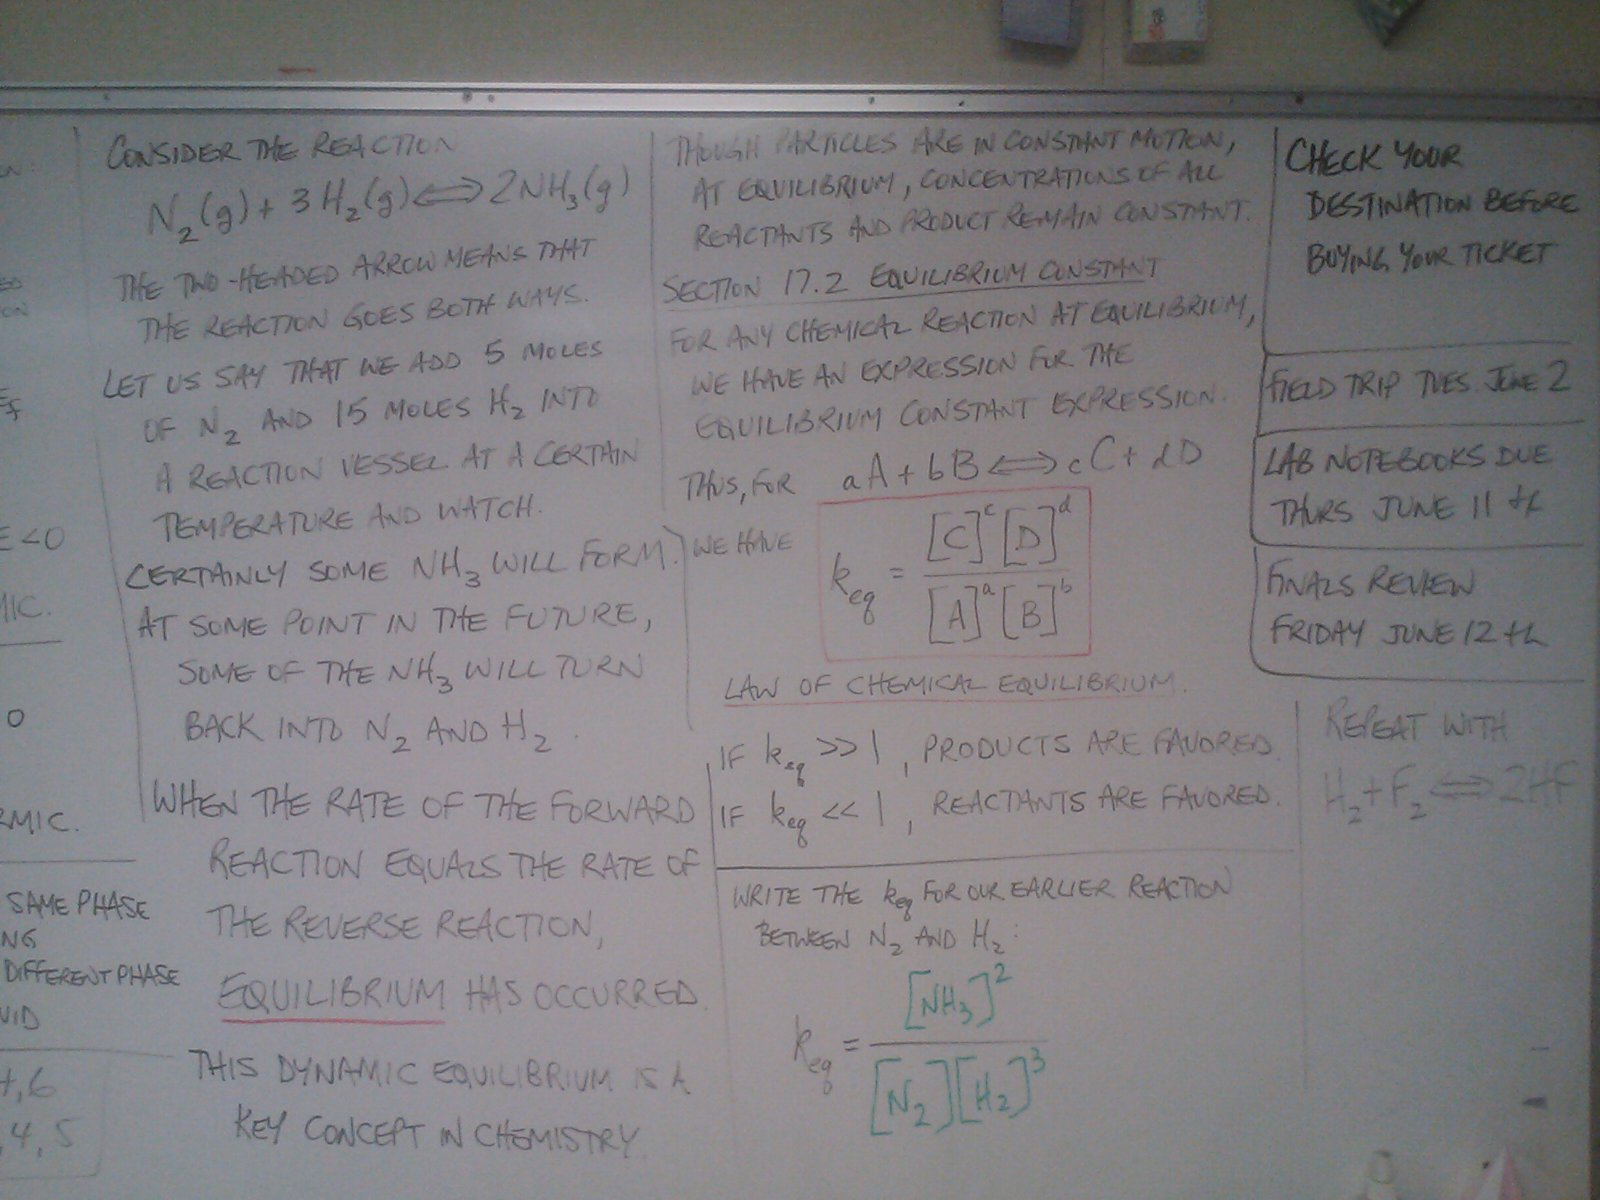 E<0
MIC.
O
RMIC.
SAME PHASE
NG
DIFFERENT PHASE
UID
,6
4, 5
CONSIDER THE REACTION
N₂(g) + 3H₂(g) ⟺ 2NH₃(g)
THE TWO-HEADED ARROW MEANS THAT
THE REACTION GOES BOTH WAYS.
LET US SAY THAT WE ADD 5 MOLES
OF N₂ AND 15 MOLES H₂ INTO
A REACTION VESSEL AT A CERTAIN
TEMPERATURE AND WATCH.
CERTAINLY SOME NH₃ WILL FORM.
AT SOME POINT IN THE FUTURE,
SOME OF THE NH₃ WILL TURN
BACK INTO N₂ AND H₂.
WHEN THE RATE OF THE FORWARD
REACTION EQUALS THE RATE OF
THE REVERSE REACTION,
EQUILIBRIUM HAS OCCURRED.
THIS DYNAMIC EQUILIBRIUM IS A
KEY CONCEPT IN CHEMISTRY
THOUGH PARTICLES ARE IN CONSTANT MOTION,
AT EQUILIBRIUM, CONCENTRATIONS OF ALL
REACTANTS AND PRODUCT REMAIN CONSTANT.
SECTION 17.2 EQUILIBRIUM CONSTANT
FOR ANY CHEMICAL REACTION AT EQUILIBRIUM,
WE HAVE AN EXPRESSION FOR THE
EQUILIBRIUM CONSTANT EXPRESSION.
THUS, FOR aA + bB ⟺ cC + dD
WE HAVE
k_eq = [C]^c [D]^d / [A]^a [B]^b
LAW OF CHEMICAL EQUILIBRIUM.
IF k_eq >> 1, PRODUCTS ARE FAVORED.
IF k_eq << 1, REACTANTS ARE FAVORED.
WRITE THE k_eq FOR OUR EARLIER REACTION
BETWEEN N₂ AND H₂:
k_eq = [NH₃]² / [N₂][H₂]³
CHECK YOUR
DESTINATION BEFORE
BUYING YOUR TICKET
FIELD TRIP TUES. JUNE 2
LAB NOTEBOOKS DUE
THURS JUNE 11th
FINALS REVIEW
FRIDAY JUNE 12th
REPEAT WITH
H₂ + F₂ ⟺ 2HF